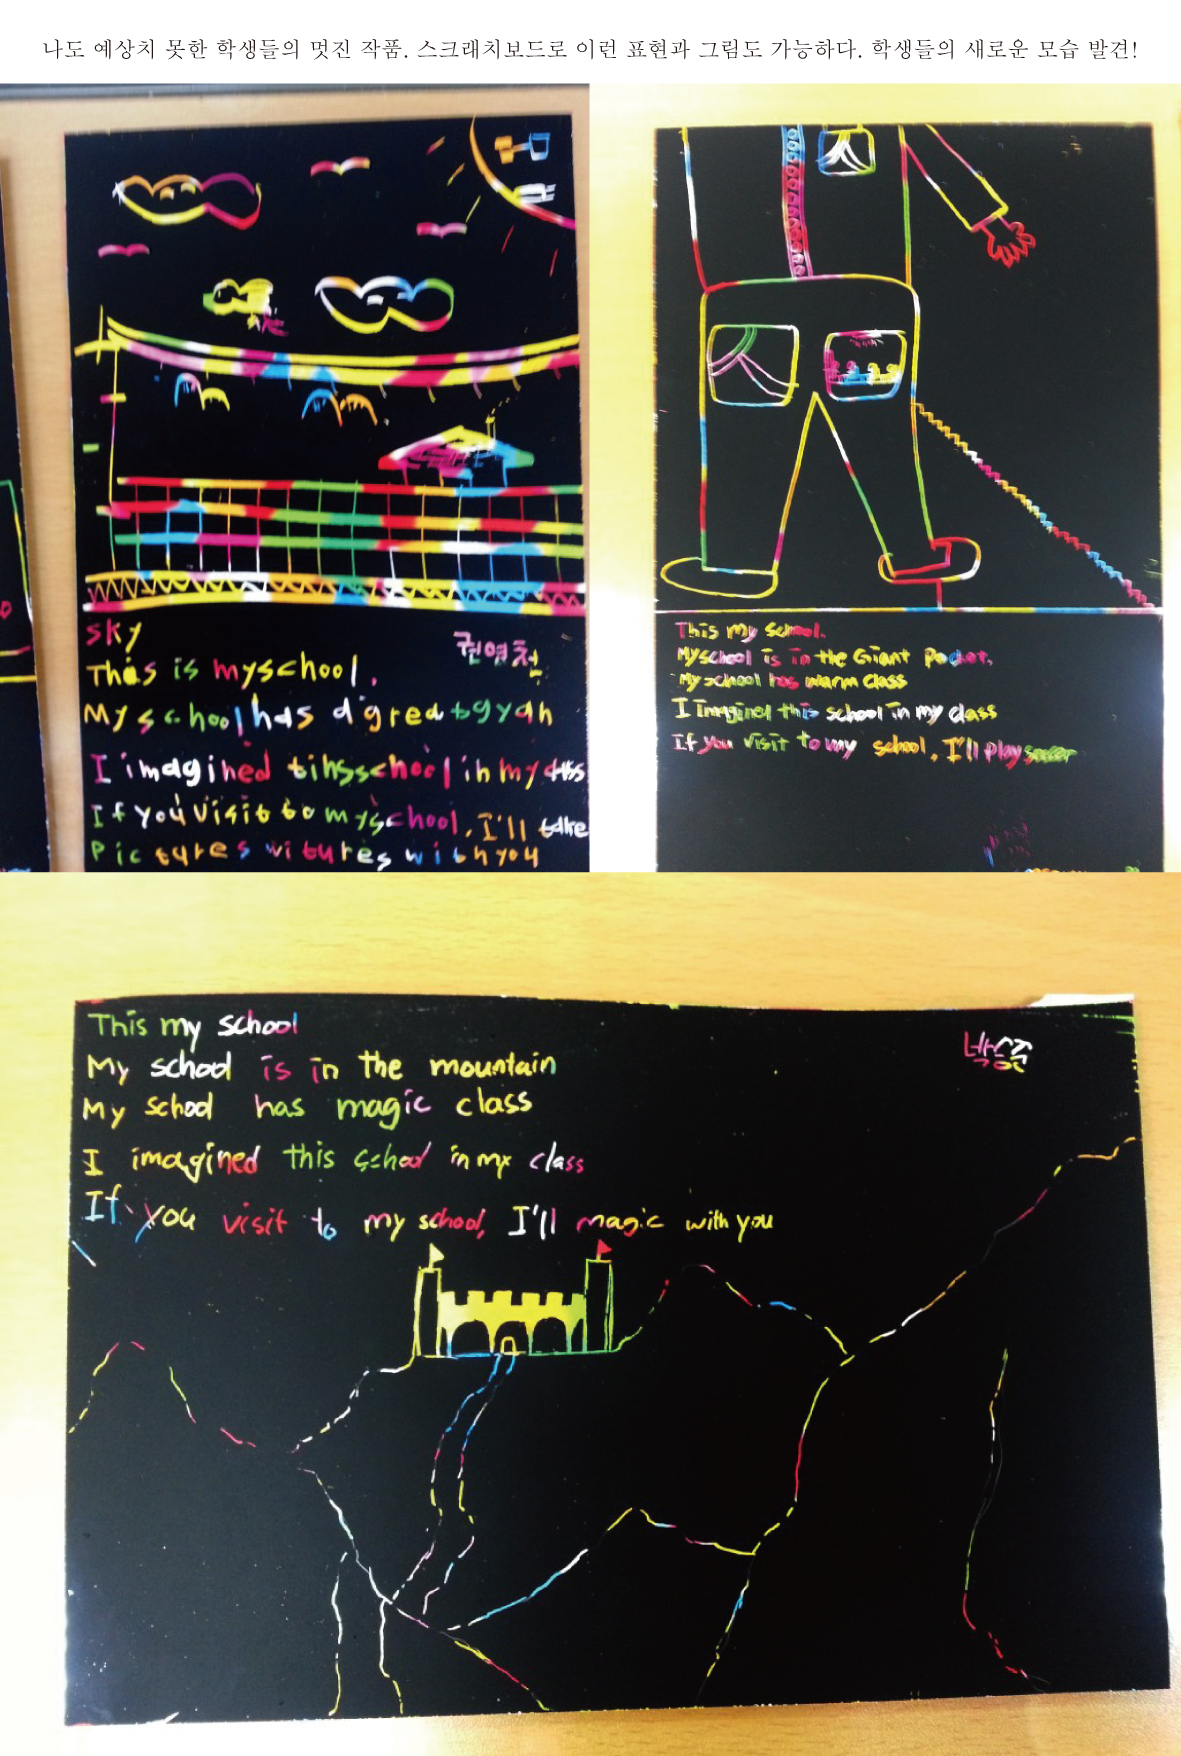 나도 예상치 못한 학생들의 멋진 작품. 스크래치보드로 이런 표현과 그림도 가능하다. 학생들의 새로운 모습 발견!
SKY
This is myschool.
My school has a
I imagined tihsschool in my class
If you visit to myschool, I'll take
Pictures vitures with you
This my school.
Myschool is in the Giant Pocket.
My school has warm class
I Imagined this school in my class
If you visit to my school, I'll play soccer
This my school
My school is in the mountain
My school has magic class
I imagined this school in my class
If you visit to my school, I'll magic with you